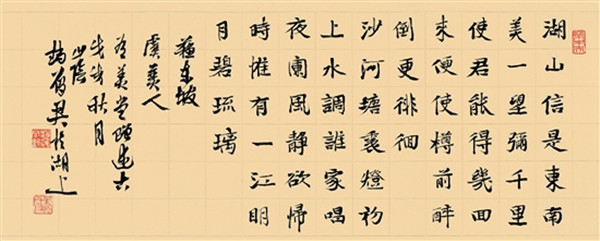 湖山信是東南
美一望彌千里
使君能得幾回
來便使樽前醉
倒更徘徊
沙河塘裏燈初
上水調誰家唱
夜闌風静欲歸
時惟有一江明
月碧琉璃
蘇東坡
虞美人
有美堂贈述古
戊戌秋月
山陰
於湖上